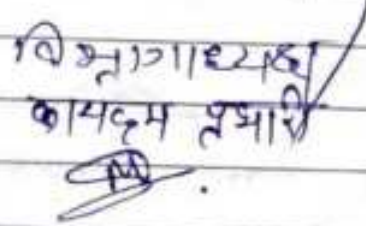 विभागाध्यक्ष
कार्यक्रम प्रभारी